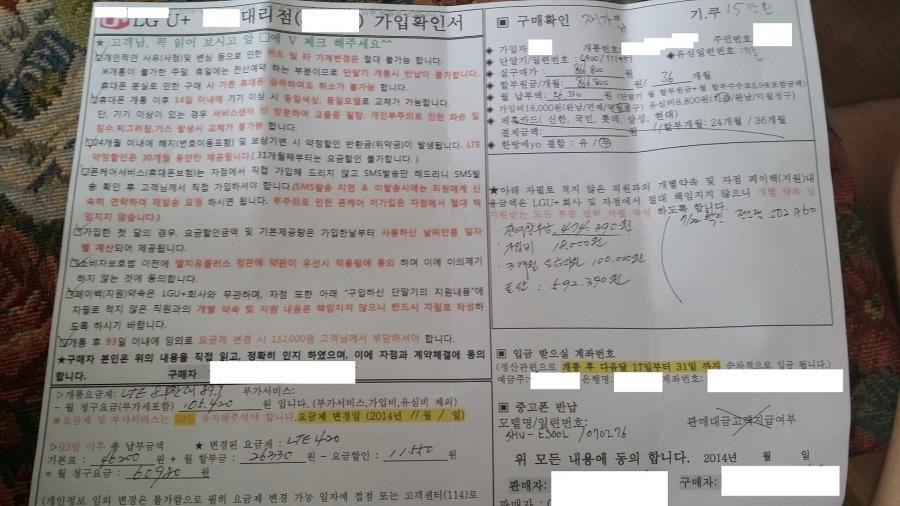 LG U+ 대리점( ) 가입확인서
★ 고객님, 꼭 읽어 보시고 앞 □에 V 체크 해주세요~^^
개인적인 사유(사정)및 변심 등으로 인한 취소 및 타 기계변경은 절대 불가능 합니다.
※개통이 불가한 주말, 휴일에는 전산예약 하는 부분이므로 단말기 개통시 반납이 불가합니다.
휴대폰 분실로 인한 구매 시 기존 휴대폰 습득하여도 취소가 불가능 합니다.
휴대폰 개통 이후 14일 이내에 기기 이상 시 동일색상, 동일모델로 교체가 가능합니다.
단, 기기 이상이 있는 경우 서비스센터 방문하여 교품증 필참, 개인부주의로 인한 파손 및
침수,찌그러짐,기스 발생시 교체가 불가능 합니다.
24개월 이내에 해지(번호이동포함) 및 보상기변 시 약정할인 반환금(위약금)이 발생됩니다. LTE
약정할인은 30개월 동안만 제공됩니다.( 31개월째부터는 요금할인 불가합니다.)
폰케어서비스(휴대폰보험)는 자점에서 직접 가입해 드리지 않고 SMS발송만 해드리니 SMS발
송 확인 후 고객님께서 직접 가입하셔야 합니다.(SMS발송 지연 & 미발송시에는 직원에게 신
속히 연락하여 재발송 요청 하시면 됩니다. 부주의로 인한 폰케어 미가입은 자점에서 절대 책
임지지 않습니다.)
가입한 첫 달의 경우, 요금할인금액 및 기본제공량은 가입한날부터 사용하신 날짜만큼 일자
별 계산되어 제공됩니다.
소비자보호법 이전에 엘지유플러스 정관에 약관이 우선시 적용됨에 동의 하며 이에 이의제기
하지 않는 것에 동의합니다.
페이백(지원)약속은 LGU+회사와 무관하며, 자점 또한 아래 "구입하신 단말기의 지원내용"에
자필로 적지 않은 직원과의 개별 약속 및 지원 내용은 책임지지 않으니 반드시 자필로 작성하
도록 하시기 바랍니다.
개통 후 93일 이내에 임의로 요금제 변경 시 132,000원 고객님께서 부담하셔야 합니다.
★구매자 본인은 위의 내용을 직접 읽고, 정확히 인지 하였으며, 이에 자점과 계약체결에 동의
합니다. 구매자
▷개통요금제: LTE 무한대 89.9 부가서비스:
- 월 청구요금(부가세포함) 105.420 원 입니다. (부가서비스,가입비,유심비 제외)
※요금제 및 부가서비스는 93일 유지해주셔야 합니다. 요금제 변경일 (2014년 11월 1일)
▷93일 이후 총 납부금액 ★ 변경된 요금제 : LTE 420
기본료 : 46200 원 + 월 할부금 : 26330 원 - 요금할인 : 11550 원
= 월 청구요금 : 60980 원
(개인정보 임의 변경은 불가함으로 필히 요금제 변경 가능 일자에 접점 또는 고객센터(114)로
■ 구매확인 재가입 기.쿠 15만원
◆ 가입자 개통번호: 주민번호:
◆ 단말기/일련번호 : 유심일련번호 :
◆ 실구매가 : 866.800 원
◆ 할부원금/개월: 866.800 원/ 36 개월
◆ 월 납부액 : 원 (단말기 월 할부원금+월 할부수수료5.9%포함금액)
◆ 가입비18,000원(완납/면제/익월청구) 유심비8,800원( /완납/익월청구)
◆ 제휴카드( 신한, 국민, 롯데, 삼성, 현대)
결제금액: 원 //할부개월: 24개월 / 36개월
◆ 한방에yo 결합 : 유 /무
★아래 자필로 적지 않은 직원과의 개별약속 및 자점 페이백(지원)내
용금액은 LGU+회사 및 자점에서 절대 책임지지 않으니 개별 약속 및
지원받는 모든 부분 필히 자필 작성 하도록 합니다.
· 잔여할부금 474.390원
· 가입비 18.000원
· 3개월 100.000원
· 토탈 : 592.390원
502960
■ 입금 받으실 계좌번호
(정산관련으로 개통 후 다음달 17일부터 31일 까지 순차적으로 입금 됩니다.)
예금주: 은행명: 계좌번호:
■ 중고폰 반납
모델명/일련번호: 판매대금고객지급여부
SHV-E300L /070276
위 모든 내용에 동의 합니다. 2014년 월 일
판매자: 구매자:
판매자 :(